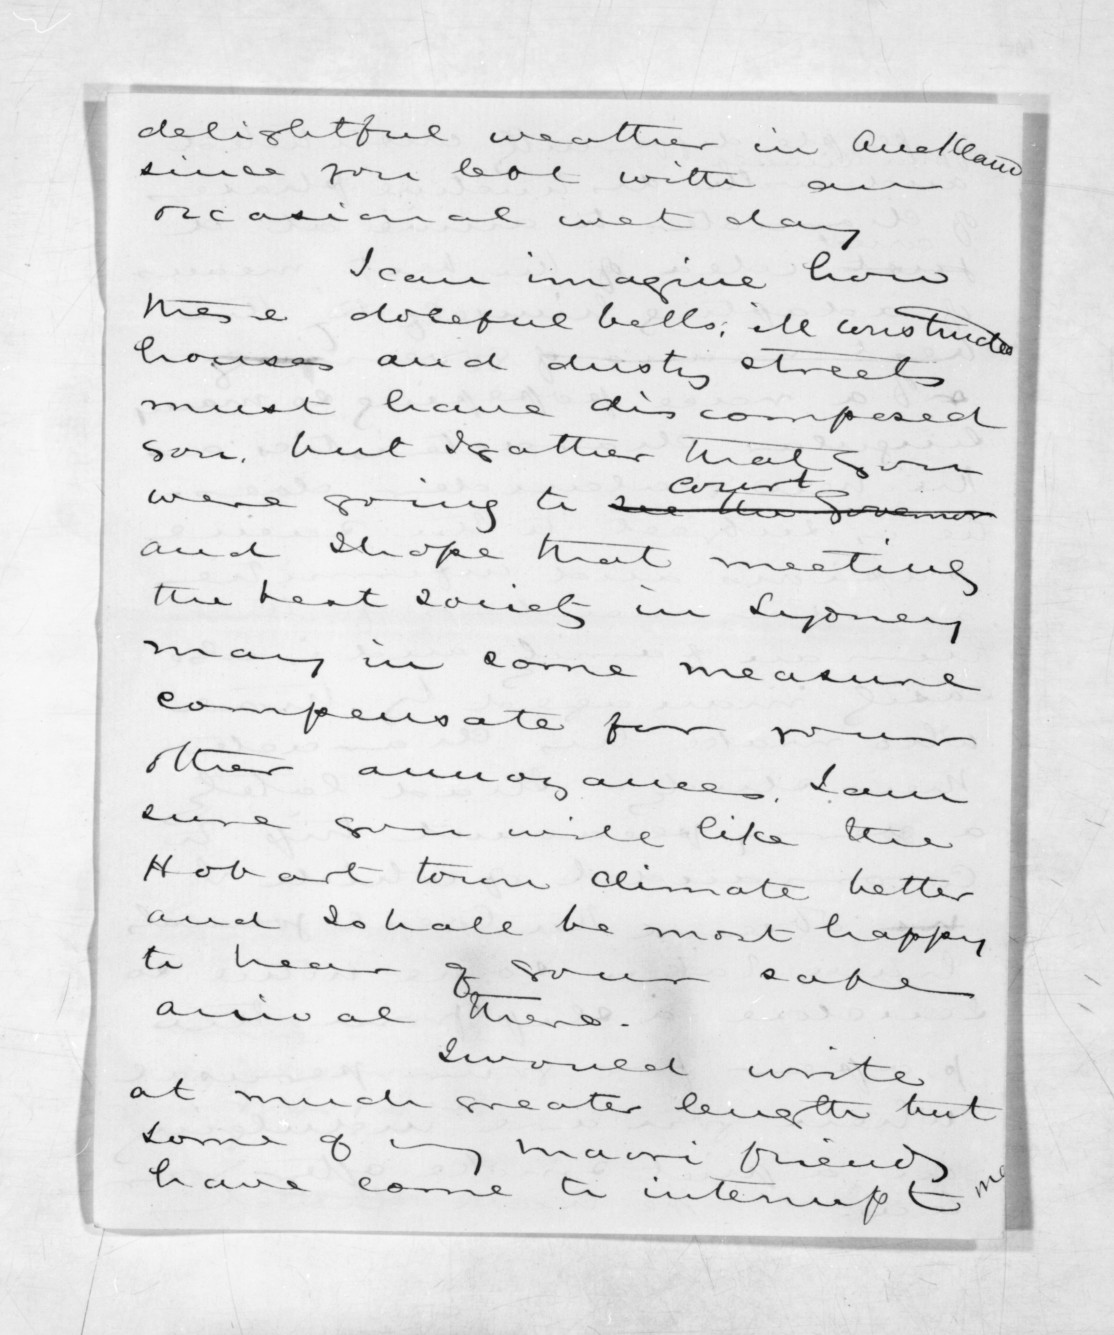 delightful weather in Auckland
since you left with an
occasional wet day
I can imagine how
these doleful bells, ill constructed
houses and dusty streets
must have discomposed
you, but I gather that you
were going to ~~see the Governor~~ court
and I hope that meeting
the best society in Sydney
may in some measure
compensate for your
other annoyances. I am
sure you will like the
Hobart town climate better
and I shall be most happy
to hear of your safe
arrival there.
I would write
at much greater length but
some of my maori friends
have come to interrupt me